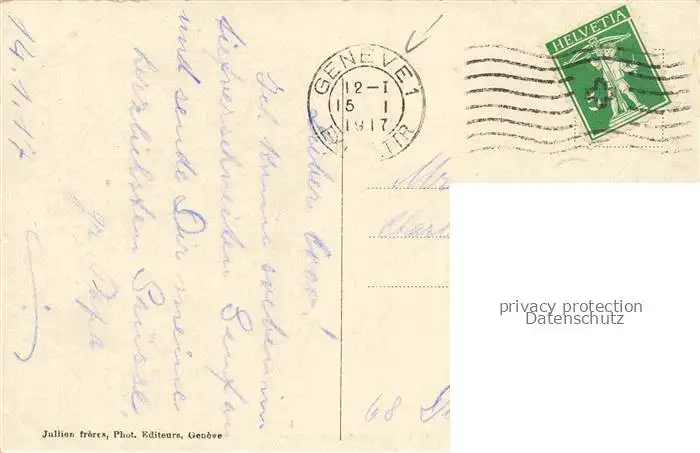 14.1.17
Lieber Oscar!
Ich komme soeben im
tiefverschneiten Genf an
und sende Dir meine
herzlichsten Grüsse.
Papa
GENÈVE 1
12-I
15 I
1917
HELVETIA
68
privacy protection
Datenschutz
Jullien frères, Phot. Editeurs, Genève